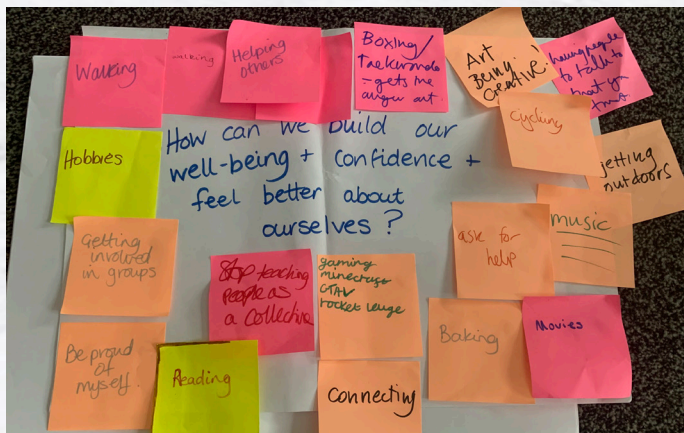 Walking
walking
Helping
others
Boxing/
Taekwondo
- gets the
anger out.
Art
Being
Creative!
having people
to talk to
that you
trust
Cycling
getting
outdoors
Hobbies
How can we build our
well-being + confidence +
feel better about
ourselves?
music
ask for
help
Getting
involved
in groups
Stop teaching
people as
a collective
gaming
minecraft
GTAV
rocket leuge
Baking
Movies
Be proud
of
myself.
Reading
Connecting